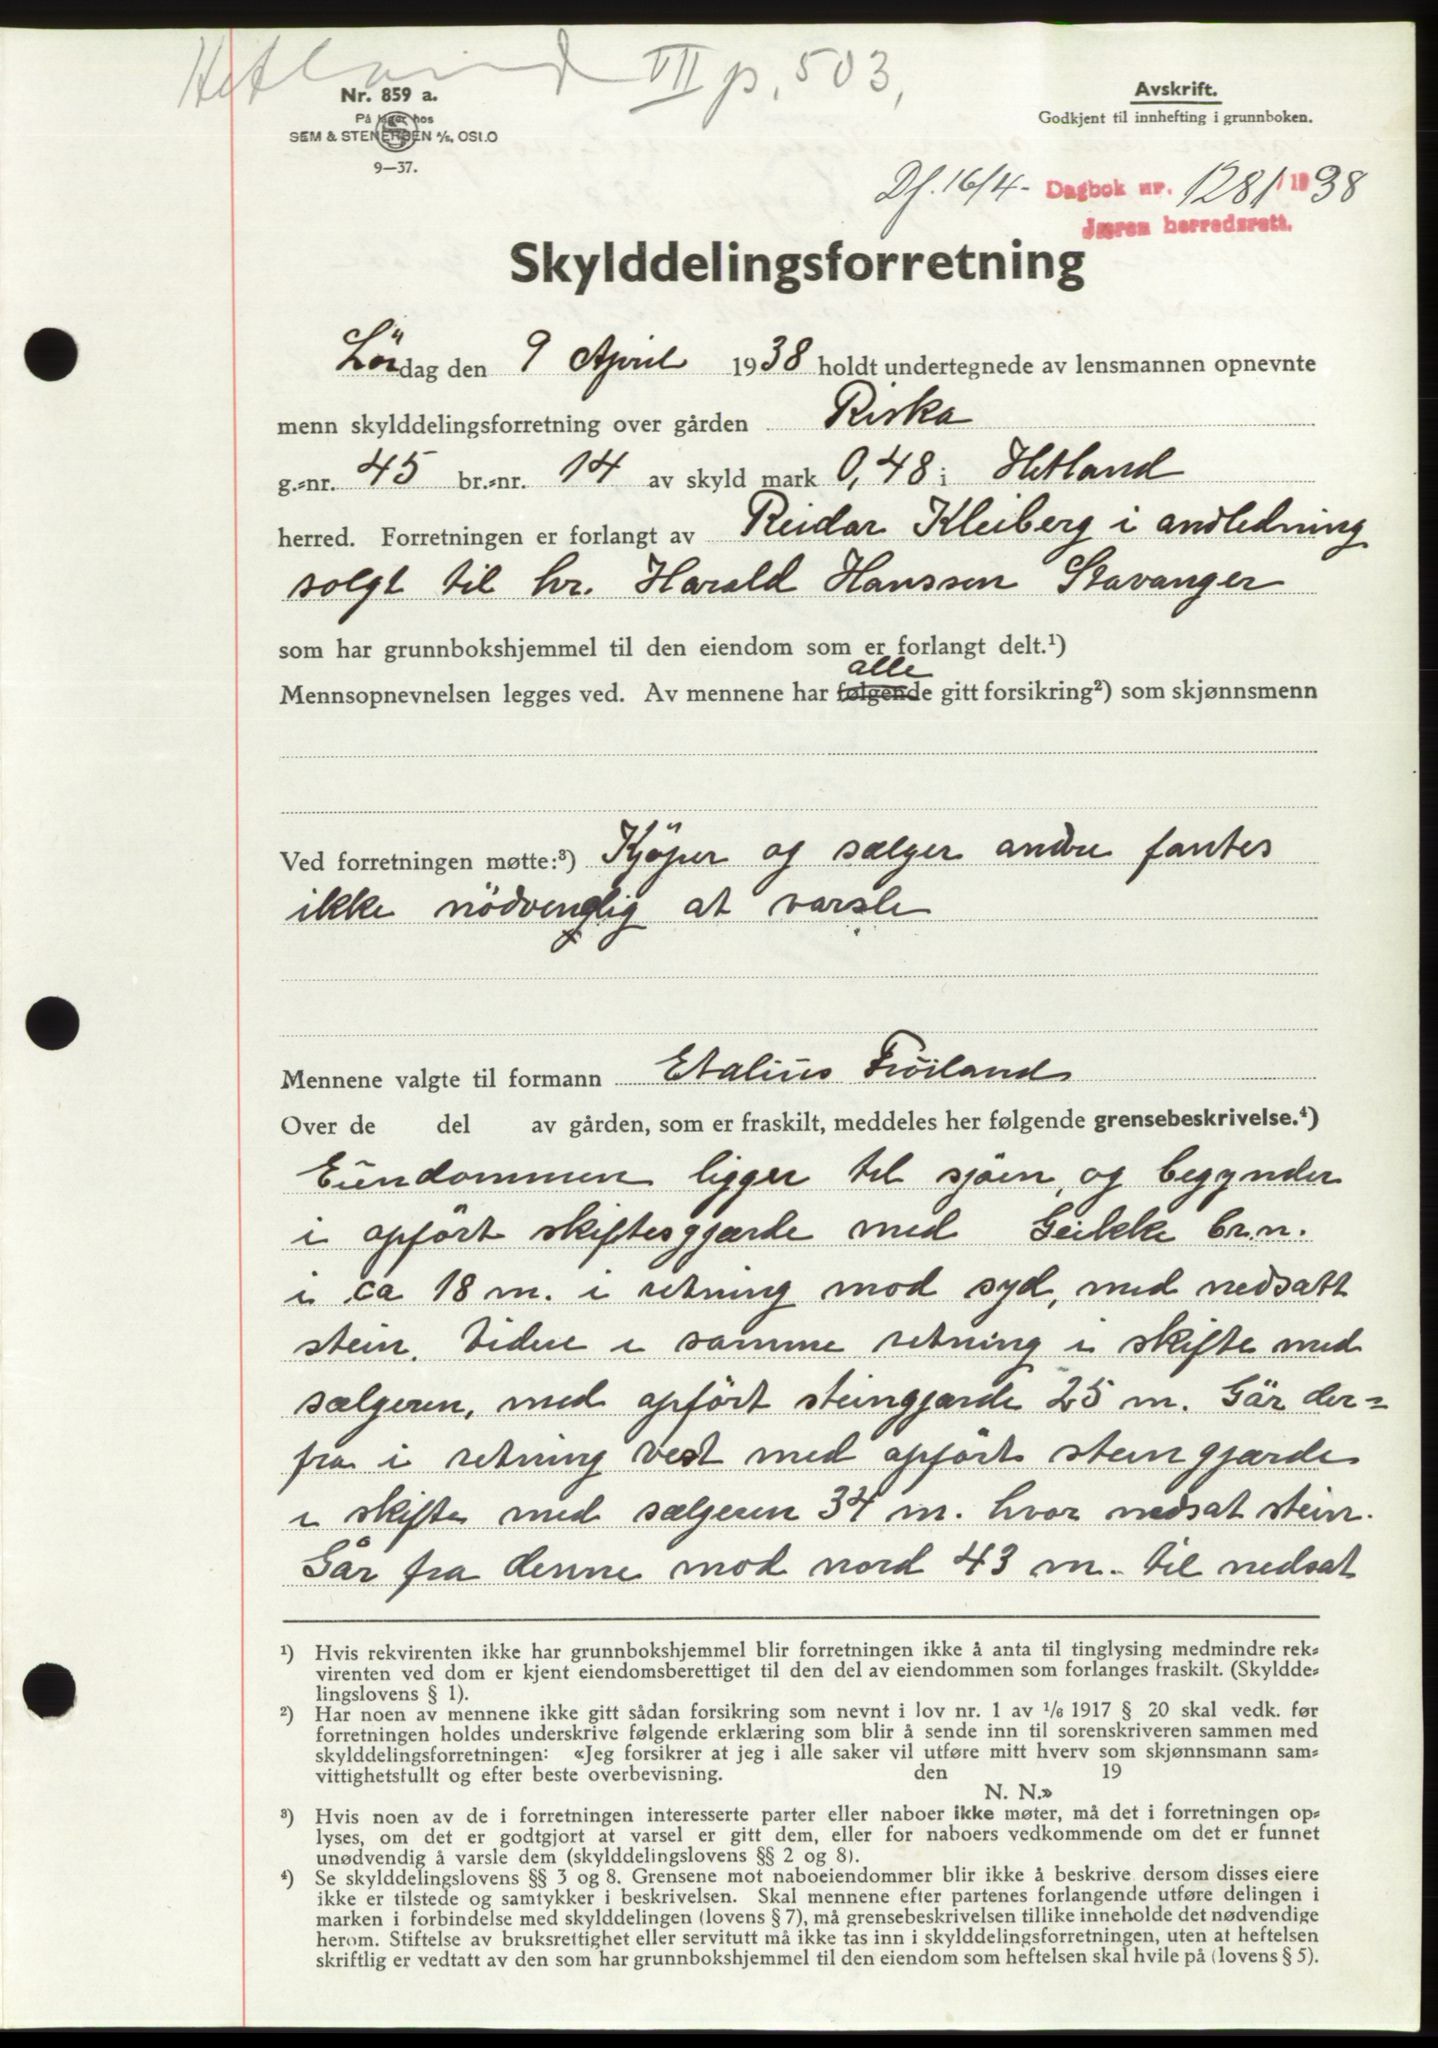 Hetland VII p. 503,
Nr. 859 a.
På lager hos
SEM & STENERSEN A/S, OSLO
9—37.
Avskrift.
Godkjent til innhefting i grunnboken.
Df. 16/4 - Dagbok nr. 1281 / 1938
Jæren herredsrett.
Skylddelingsforretning
Lördag den 9 April 1938 holdt undertegnede av lensmannen opnevnte
menn skylddelingsforretning over gården Riska
g.=nr. 45 br.=nr. 14 av skyld mark 0,48 i Hetland
herred. Forretningen er forlangt av Reidar Kleiberg i andledning
solgt til hr. Harald Hanssen Stavanger
som har grunnbokshjemmel til den eiendom som er forlangt delt.¹)
alle
Mennsopnevnelsen legges ved. Av mennene har følgende gitt forsikring²) som skjønnsmenn
Ved forretningen møtte:³) Kjöper og sælger andre fantes
ikke nödvenglig at varsle
Mennene valgte til formann Etalius Fröiland
Over de del av gården, som er fraskilt, meddeles her følgende grensebeskrivelse.⁴)
Eiendommen ligger til sjöen, og begynder
i opfört skiftesgjærde med Geikke br.n.
i ca 18 m. i retning mod syd, med nedsatt
stein. Videre i samme retning i skifte med
sælgeren, med opfört steingjærde 25 m. Går der=
fra i retning vest med opfört steingjærde
i skifte med sælgeren 34 m. hvor nedsat stein.
Går fra denne mod nord 43 m. til nedsat
¹) Hvis rekvirenten ikke har grunnbokshjemmel blir forretningen ikke å anta til tinglysing medmindre rek=
virenten ved dom er kjent eiendomsberettiget til den del av eiendommen som forlanges fraskilt. (Skyldde=
lingslovens § 1).
²) Har noen av mennene ikke gitt sådan forsikring som nevnt i lov nr. 1 av 1/6 1917 § 20 skal vedk. før
forretningen holdes underskrive følgende erklæring som blir å sende inn til sorenskriveren sammen med
skylddelingsforretningen: «Jeg forsikrer at jeg i alle saker vil utføre mitt hverv som skjønnsmann sam=
vittighetsfullt og efter beste overbevisning. den 19
N. N.»
³) Hvis noen av de i forretningen interesserte parter eller naboer ikke møter, må det i forretningen op=
lyses, om det er godtgjort at varsel er gitt dem, eller for naboers vedkommende om det er funnet
unødvendig å varsle dem (skylddelingslovens §§ 2 og 8).
⁴) Se skylddelingslovens §§ 3 og 8. Grensene mot naboeiendommer blir ikke å beskrive dersom disses eiere
ikke er tilstede og samtykker i beskrivelsen. Skal mennene efter partenes forlangende utføre delingen i
marken i forbindelse med skylddelingen (lovens § 7), må grensebeskrivelsen tillike inneholde det nødvendige
herom. Stiftelse av bruksrettighet eller servitutt må ikke tas inn i skylddelingsforretningen, uten at heftelsen
skriftlig er vedtatt av den som har grunnbokshjemmel til den eiendom som heftelsen skal hvile på (lovens § 5).